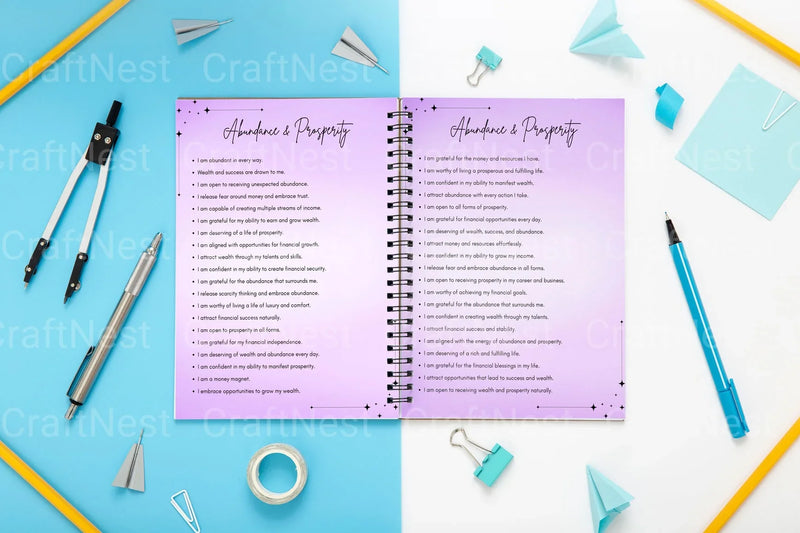 CraftNest CraftNest CraftNest CraftNest
Abundance & Prosperity
I am abundant in every way.
Wealth and success are drawn to me.
I am open to receiving unexpected abundance.
I release fear around money and embrace trust.
I am capable of creating multiple streams of income.
I am grateful for my ability to earn and grow wealth.
I am deserving of a life of prosperity.
I am aligned with opportunities for financial growth.
I attract wealth through my talents and skills.
I am confident in my ability to create financial security.
I am grateful for the abundance that surrounds me.
I release scarcity thinking and embrace abundance.
I am worthy of living a life of luxury and comfort.
I attract financial success naturally.
I am open to prosperity in all forms.
I am grateful for my financial independence.
I am deserving of wealth and abundance every day.
I am confident in my ability to manifest prosperity.
I am a money magnet.
I embrace opportunities to grow my wealth.
Abundance & Prosperity
I am grateful for the money and resources I have.
I am worthy of living a prosperous and fulfilling life.
I am confident in my ability to manifest wealth.
I attract abundance with every action I take.
I am open to all forms of prosperity.
I am grateful for financial opportunities every day.
I am deserving of wealth, success, and abundance.
I attract money and resources effortlessly.
I am confident in my ability to grow my income.
I release fear and embrace abundance in all forms.
I am open to receiving prosperity in my career and business.
I am worthy of achieving my financial goals.
I am grateful for the abundance that surrounds me.
I am confident in creating wealth through my talents.
I attract financial success and stability.
I am aligned with the energy of abundance and prosperity.
I am deserving of a rich and fulfilling life.
I am grateful for the financial blessings in my life.
I attract opportunities that lead to success and wealth.
I am open to receiving wealth and prosperity naturally.